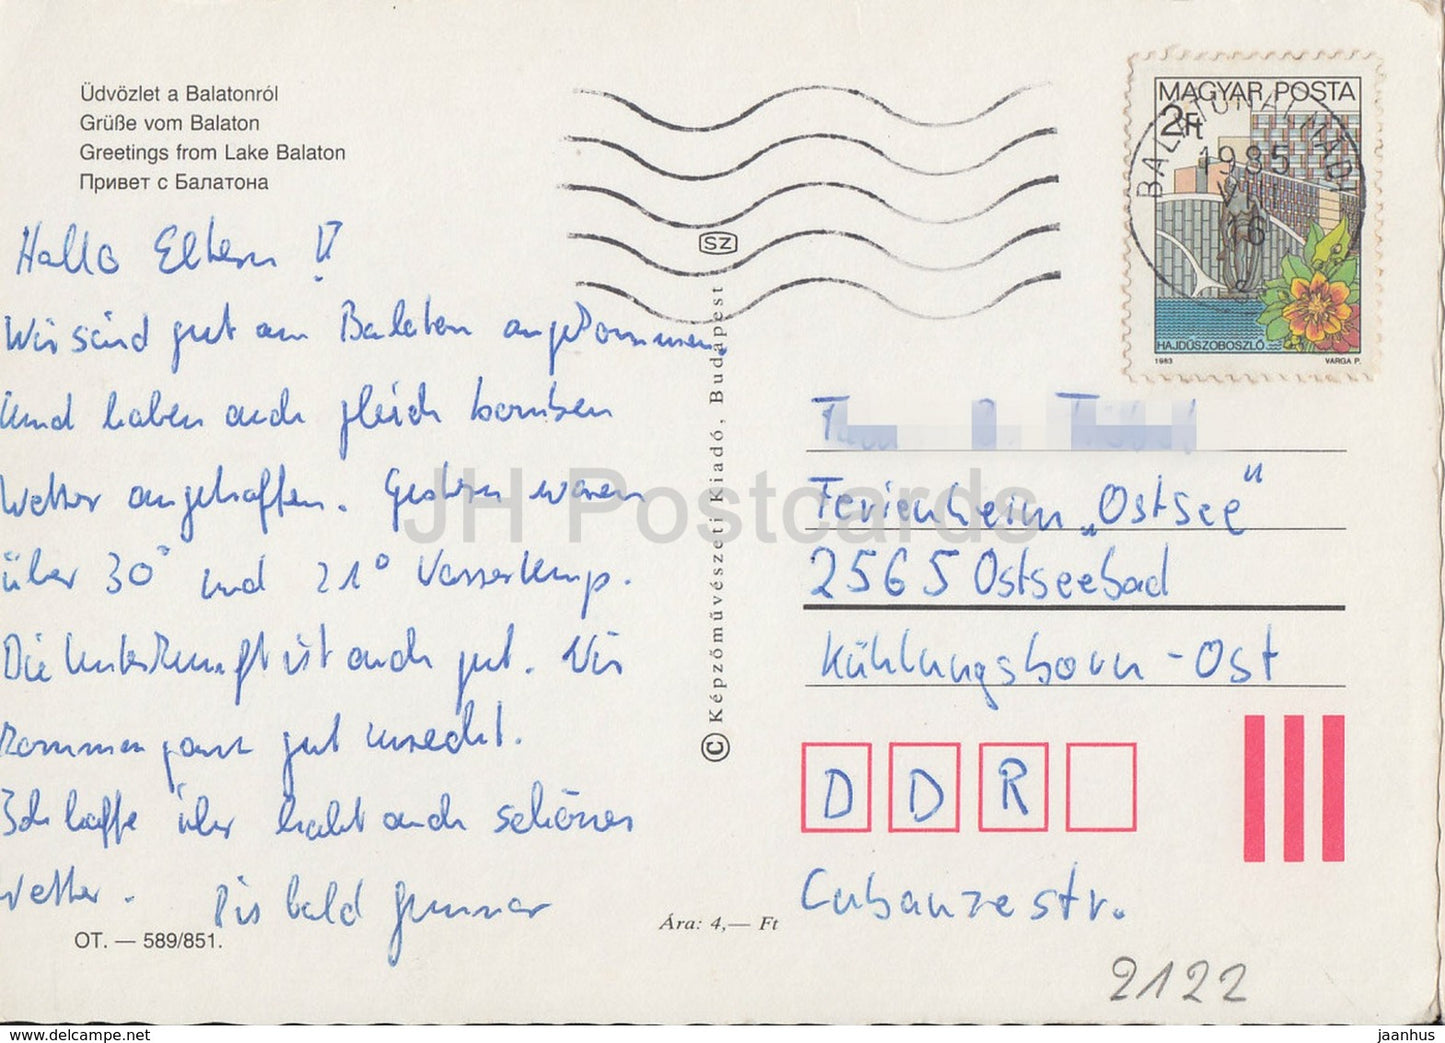 Üdvözlet a Balatonról
Grüße vom Balaton
Greetings from Lake Balaton
Привет с Балатона
Hallo Eltern !!
Wir sind gut am Balaton angekommen.
Und haben auch gleich bomben
Wetter angetroffen. Gestern waren
über 30° und 21° Wassertemp.
Die Unterkunft ist auch gut. Wir
kommen ganz gut zurecht.
Ich hoffe ihr habt auch schönes
Wetter. Bis bald Gunnar
OT. — 589/851.
Ára: 4,— Ft
SZ
© Képzőművészeti Kiadó, Budapest
MAGYAR POSTA
2Ft
BALATONALMÁDI
1985
VII
16
HAJDÚSZOBOSZLÓ
1983 VARGA P.
Ferienheim „Ostsee“
2565 Ostseebad
Kühlungsborn - Ost
DDR
Cubanzestr.
2122
JH Postcards
www.delcampe.net
jaanhus